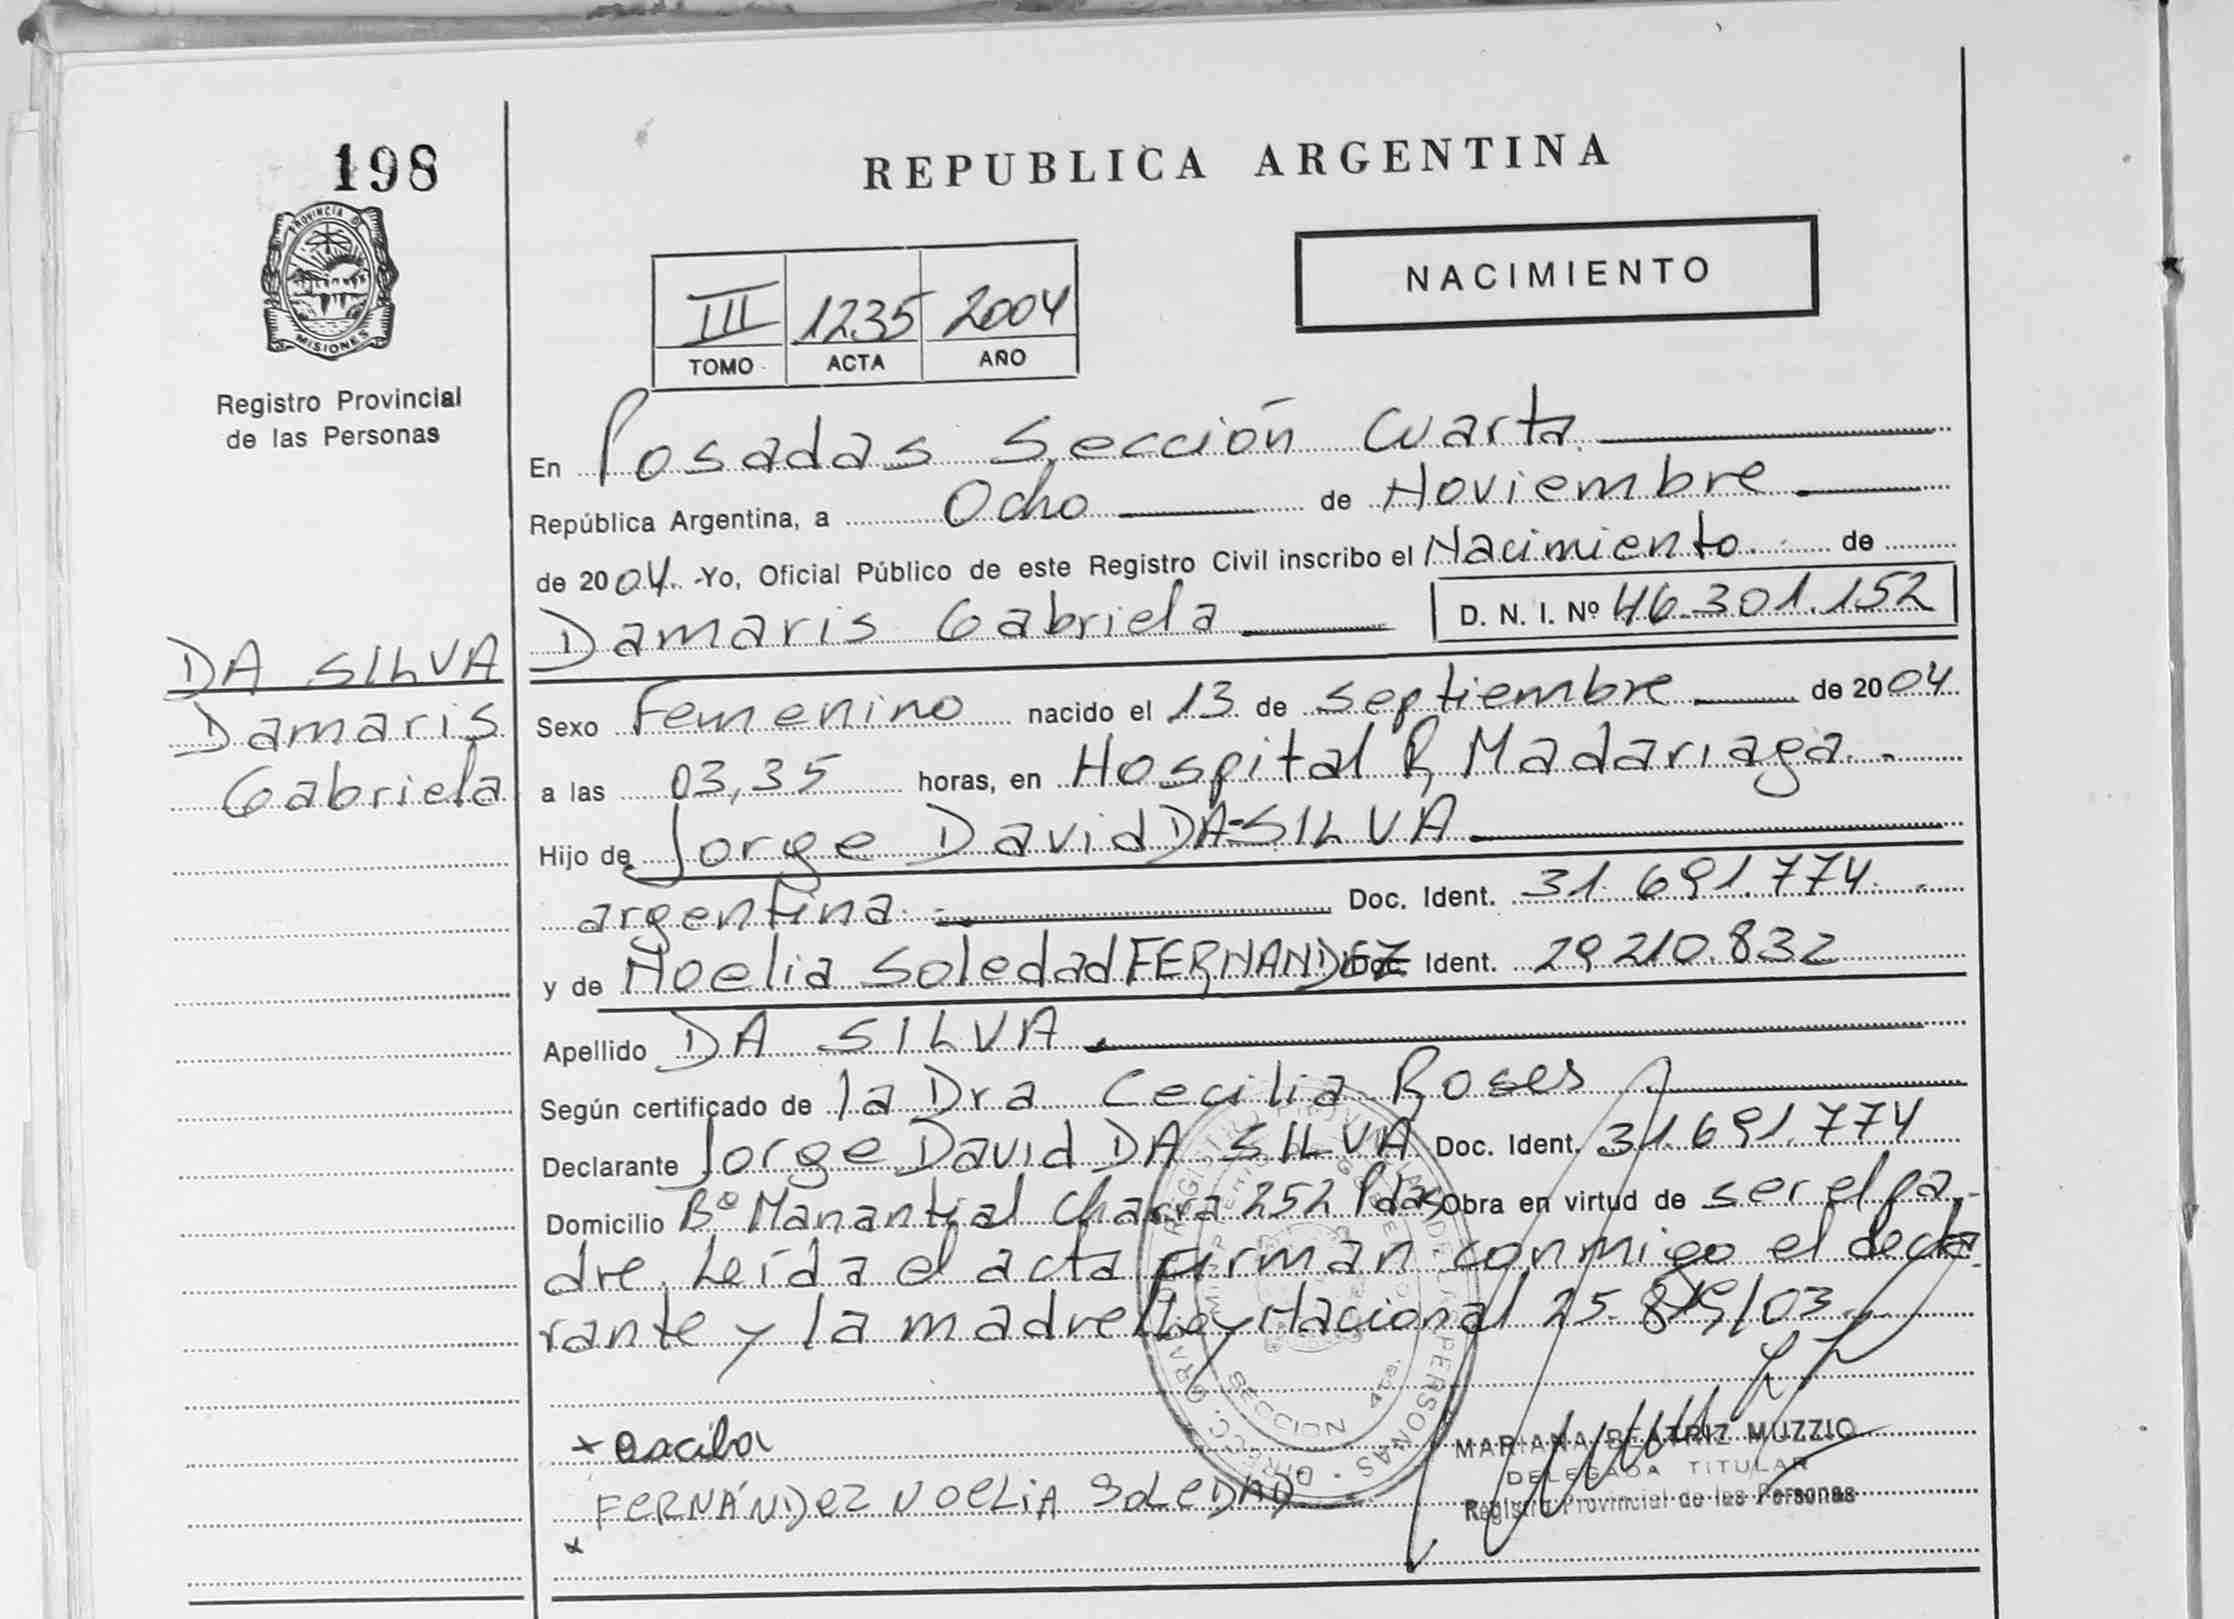 198
PROVINCIA D
MISIONES
Registro Provincial
de las Personas
REPUBLICA ARGENTINA
NACIMIENTO
III 1235 2004
TOMO ACTA AÑO
En Posadas Sección Cuarta
República Argentina, a Ocho de Noviembre
de 2004. Yo, Oficial Público de este Registro Civil inscribo el Nacimiento de
Damaris Gabriela D. N. I. Nº 46.301.152
DA SILVA
Damaris
Gabriela
Sexo Femenino nacido el 13 de septiembre de 2004
a las 03,35 horas, en Hospital R Madariaga
Hijo de Jorge David DA SILVA
argentina Doc. Ident. 31.691.774
y de Noelia Soledad FERNANDEZ Doc. Ident. 29.210.832
Apellido DA SILVA
Según certificado de la Dra Cecilia Roses
Declarante Jorge David DA SILVA Doc. Ident. 31.691.774
Domicilio Bº Manantial Chacra 252 Pdas Obra en virtud de ser el pa-
dre. Leída el acta firman conmigo el decla
rante y la madre Ley Nacional 25.819/03
MARIANA BEATRIZ MUZZIO
DELEGADA TITULAR
Registro Provincial de las Personas
FERNÁNDEZ NOELIA SOLEDAD
SECCION 4ta.